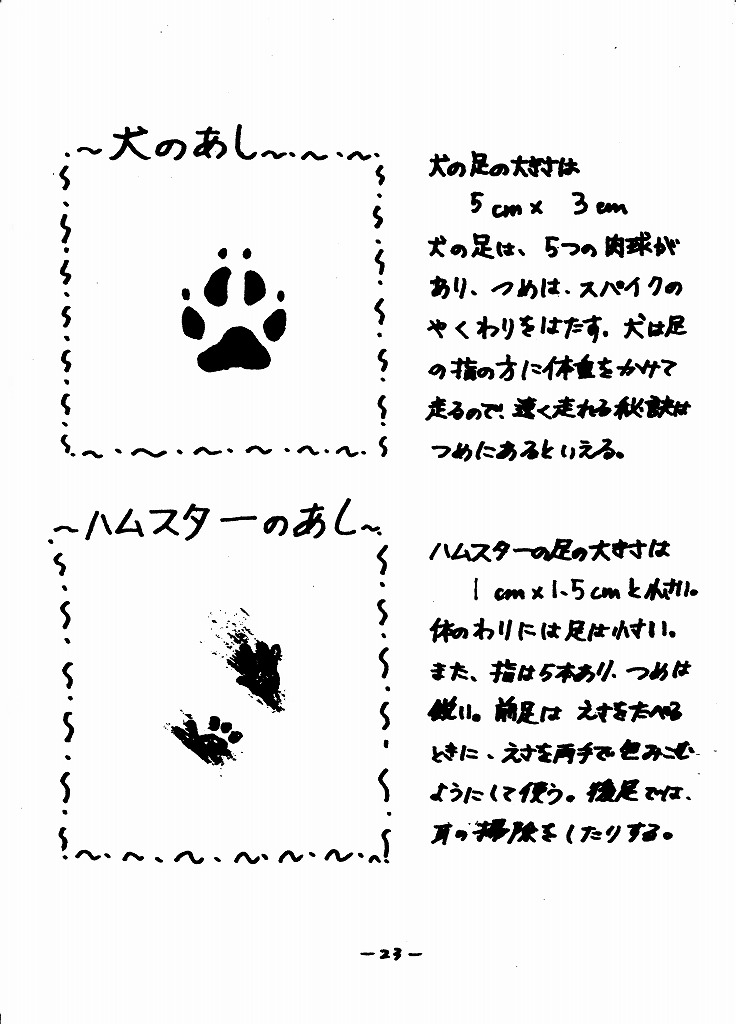 ～犬のあし～
犬の足の大きさは
5cm×3cm
犬の足は、5つの肉球が
あり、つめは、スパイクの
やくわりをはたす。犬は足
の指の方に体重をかけて
走るので、速く走れる秘訣は
つめにあるといえる。
～ハムスターのあし～
ハムスターの足の大きさは
1cm×1.5cmと小さい。
体のわりには足は小さい。
また、指は5本あり、つめは
鋭い。前足は えさをたべる
ときに、えさを両手で包みこむ
ようにして使う。後足では、
耳の掃除をしたりする。
－23－